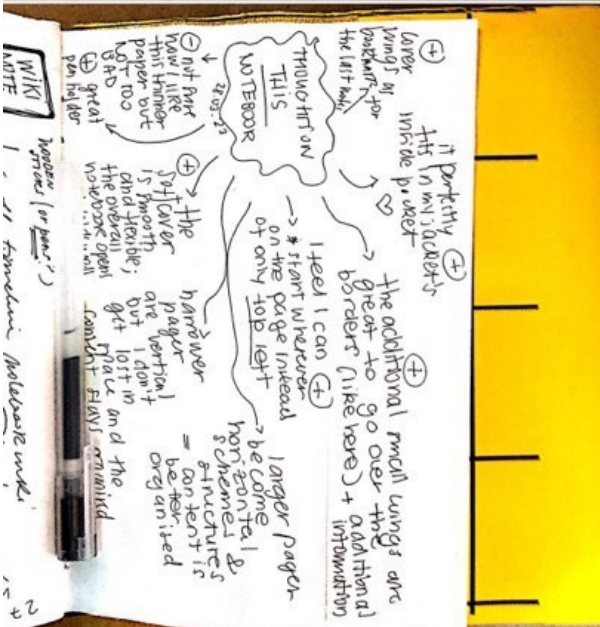 THOUGHTS ON
THIS
NOTEBOOK
28.03.23
+
cover
wings as
bookmark for
the last note
+
it perfectly
fits in my jacket's
inside pocket
♡
+
the additional small wings are
great to go over the
borders (like here) + additional
information
I feel I can +
* start wherever
on the page instead
of only top left
larger pages
become
horizontal
schemes &
structures
= content is
better
organised
narrower
pages
are vertical
but I don't
get lost in
space and the
content stays
+
the
soft cover
is smooth
and flexible;
the overall
notebook opens
well
- not sure
how I like
this thinner
paper but
NOT TOO
BAD
+ great
pen holder
WIKI
NOTE
WOODEN
(or pens?)
timeline notebook wiki
27